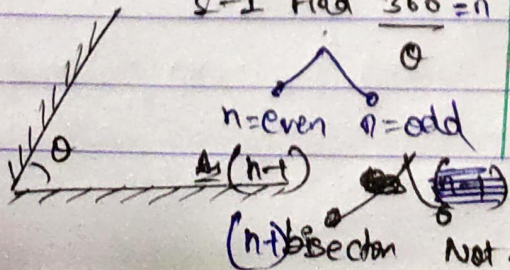 S-1 Find 360/θ = n
n=even n=odd
θ
As (n-1)
(n-1) bisecton Not